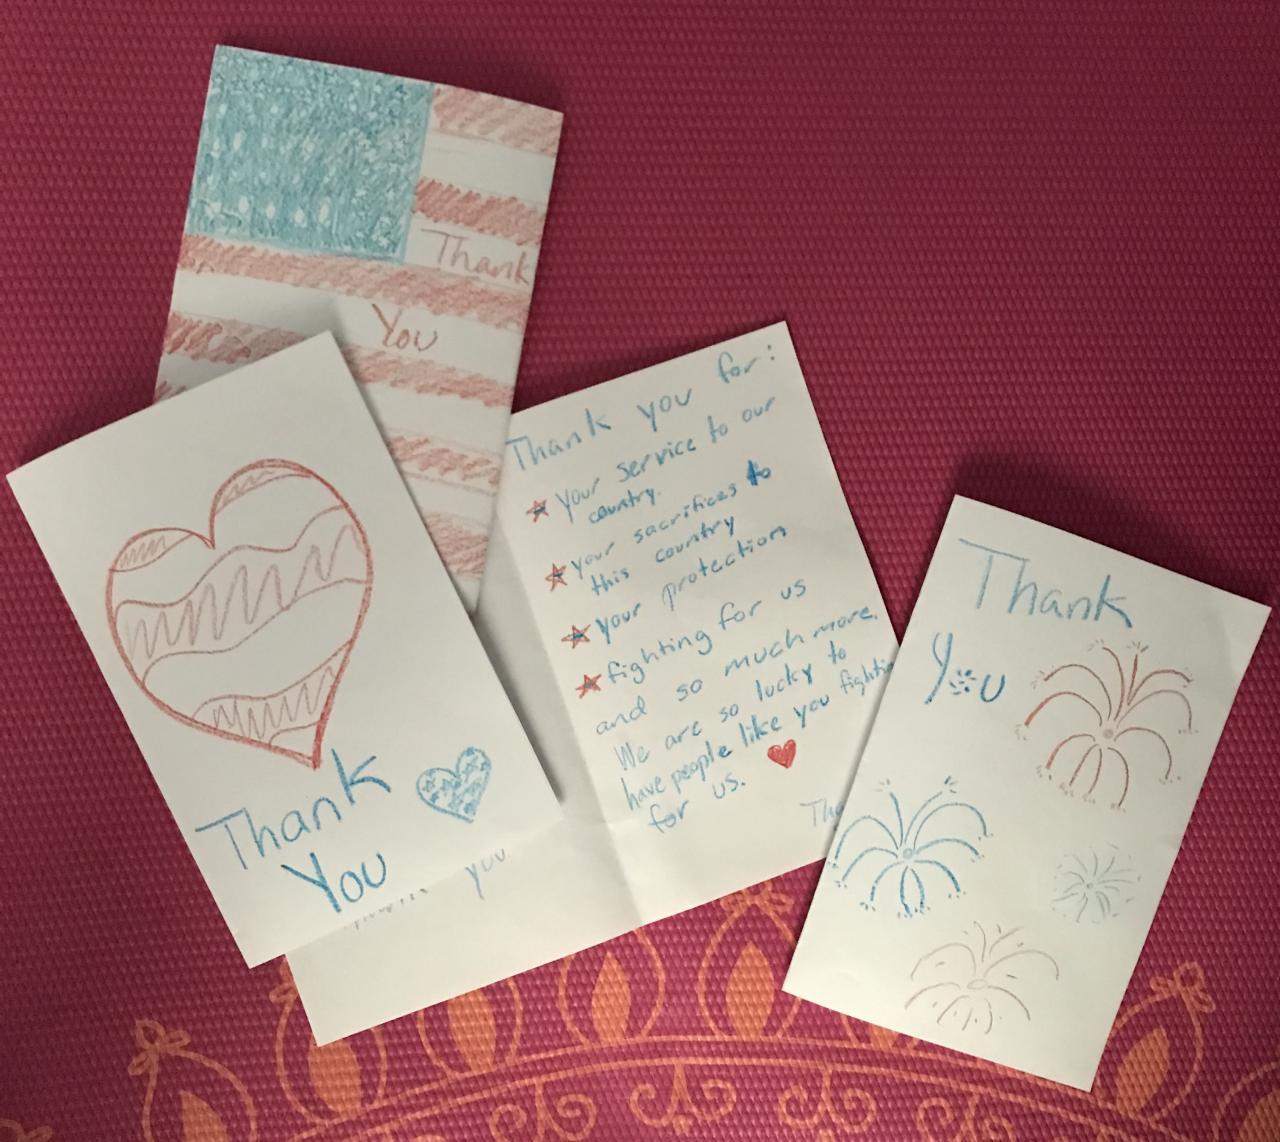 Thank
You
Thank
You
Thank you for:
your service to our
country.
your sacrifices to
this country
your protection
fighting for us
and so much more.
We are so lucky to
have people like you fightin
for us.
you
Thank
You